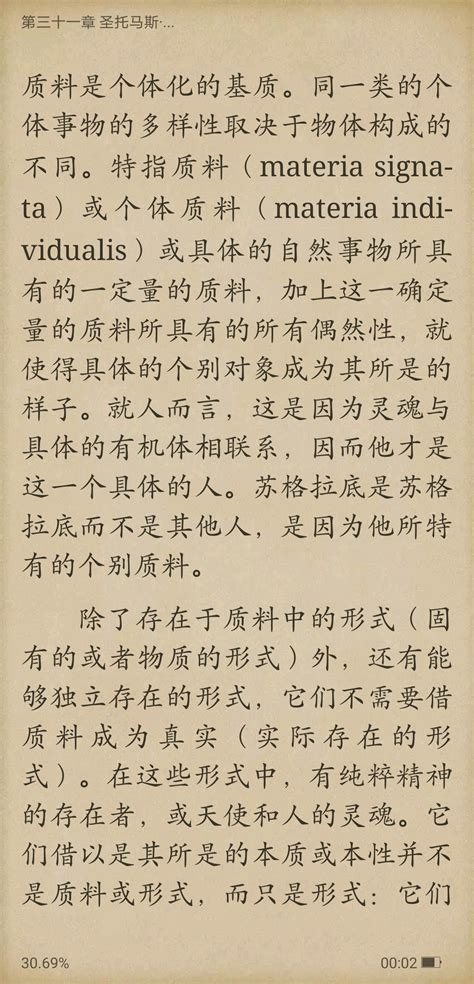 第三十一章 圣托马斯·...
质料是个体化的基质。同一类的个
体事物的多样性取决于物体构成的
不同。特指质料（materia signa-
ta）或个体质料（materia indi-
vidualis）或具体的自然事物所具
有的一定量的质料，加上这一确定
量的质料所具有的所有偶然性，就
使得具体的个别对象成为其所是的
样子。就人而言，这是因为灵魂与
具体的有机体相联系，因而他才是
这一个具体的人。苏格拉底是苏格
拉底而不是其他人，是因为他所特
有的个别质料。
除了存在于质料中的形式（固
有的或者物质的形式）外，还有能
够独立存在的形式，它们不需要借
质料成为真实（实际存在的形
式）。在这些形式中，有纯粹精神
的存在者，或天使和人的灵魂。它
们借以是其所是的本质或本性并不
是质料或形式，而只是形式：它们
30.69%
00:02